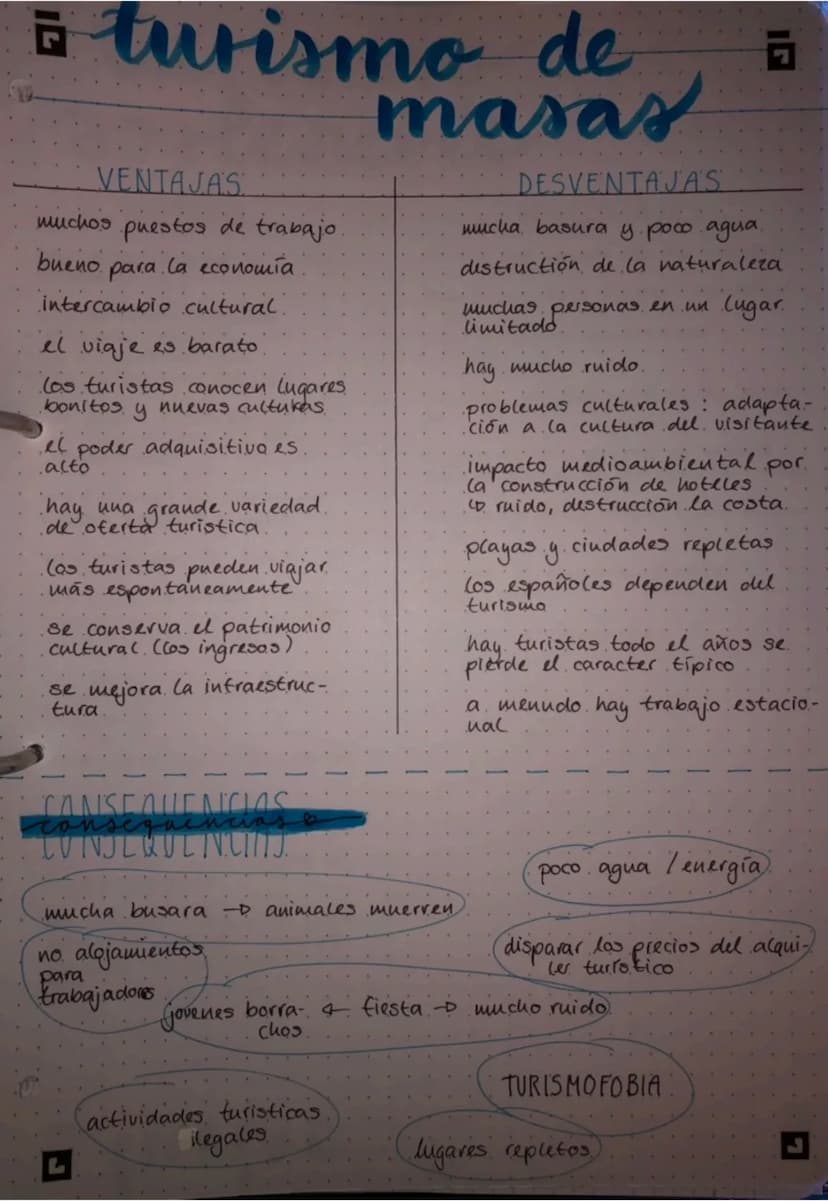 turismo de
masas
VENTAJAS
muchos puestos de trabajo
bueno para la economía
intercambio cultural
el viaje es barato
los turistas conocen lugares
bonitos y nuevas culturas
el poder adquisitivo es
alto
hay una grande variedad
de oferta turistica
los turistas pueden viajar
más espontáneamente
se conserva el patrimonio
cultural (los ingresos)
se mejora la infraestruc-
tura
DESVENTAJAS
mucha basura y poco agua
destructión de la naturaleza
muchas personas en un lugar
limitado
hay mucho ruido
problemas culturales : adapta-
ción a la cultura del visitante
impacto medioambiental por
la construcción de hoteles
↳ ruido, destrucción la costa
playas y ciudades repletas
los españoles dependen del
turismo
hay turistas todo el años se
pierde el caracter típico
a menudo hay trabajo estacio-
nal
CONSEQUENCIAS
consequencias
CONSEQUENCIAS
poco agua / energía
mucha busara → animales muerren
no alojamientos
para
trabajadores
disparar los precios del alqui-
ler turístico
jovenes borra- ← fiesta → mucho ruido
chos
TURISMOFOBIA
actividades turisticas
ilegales
lugares repletos